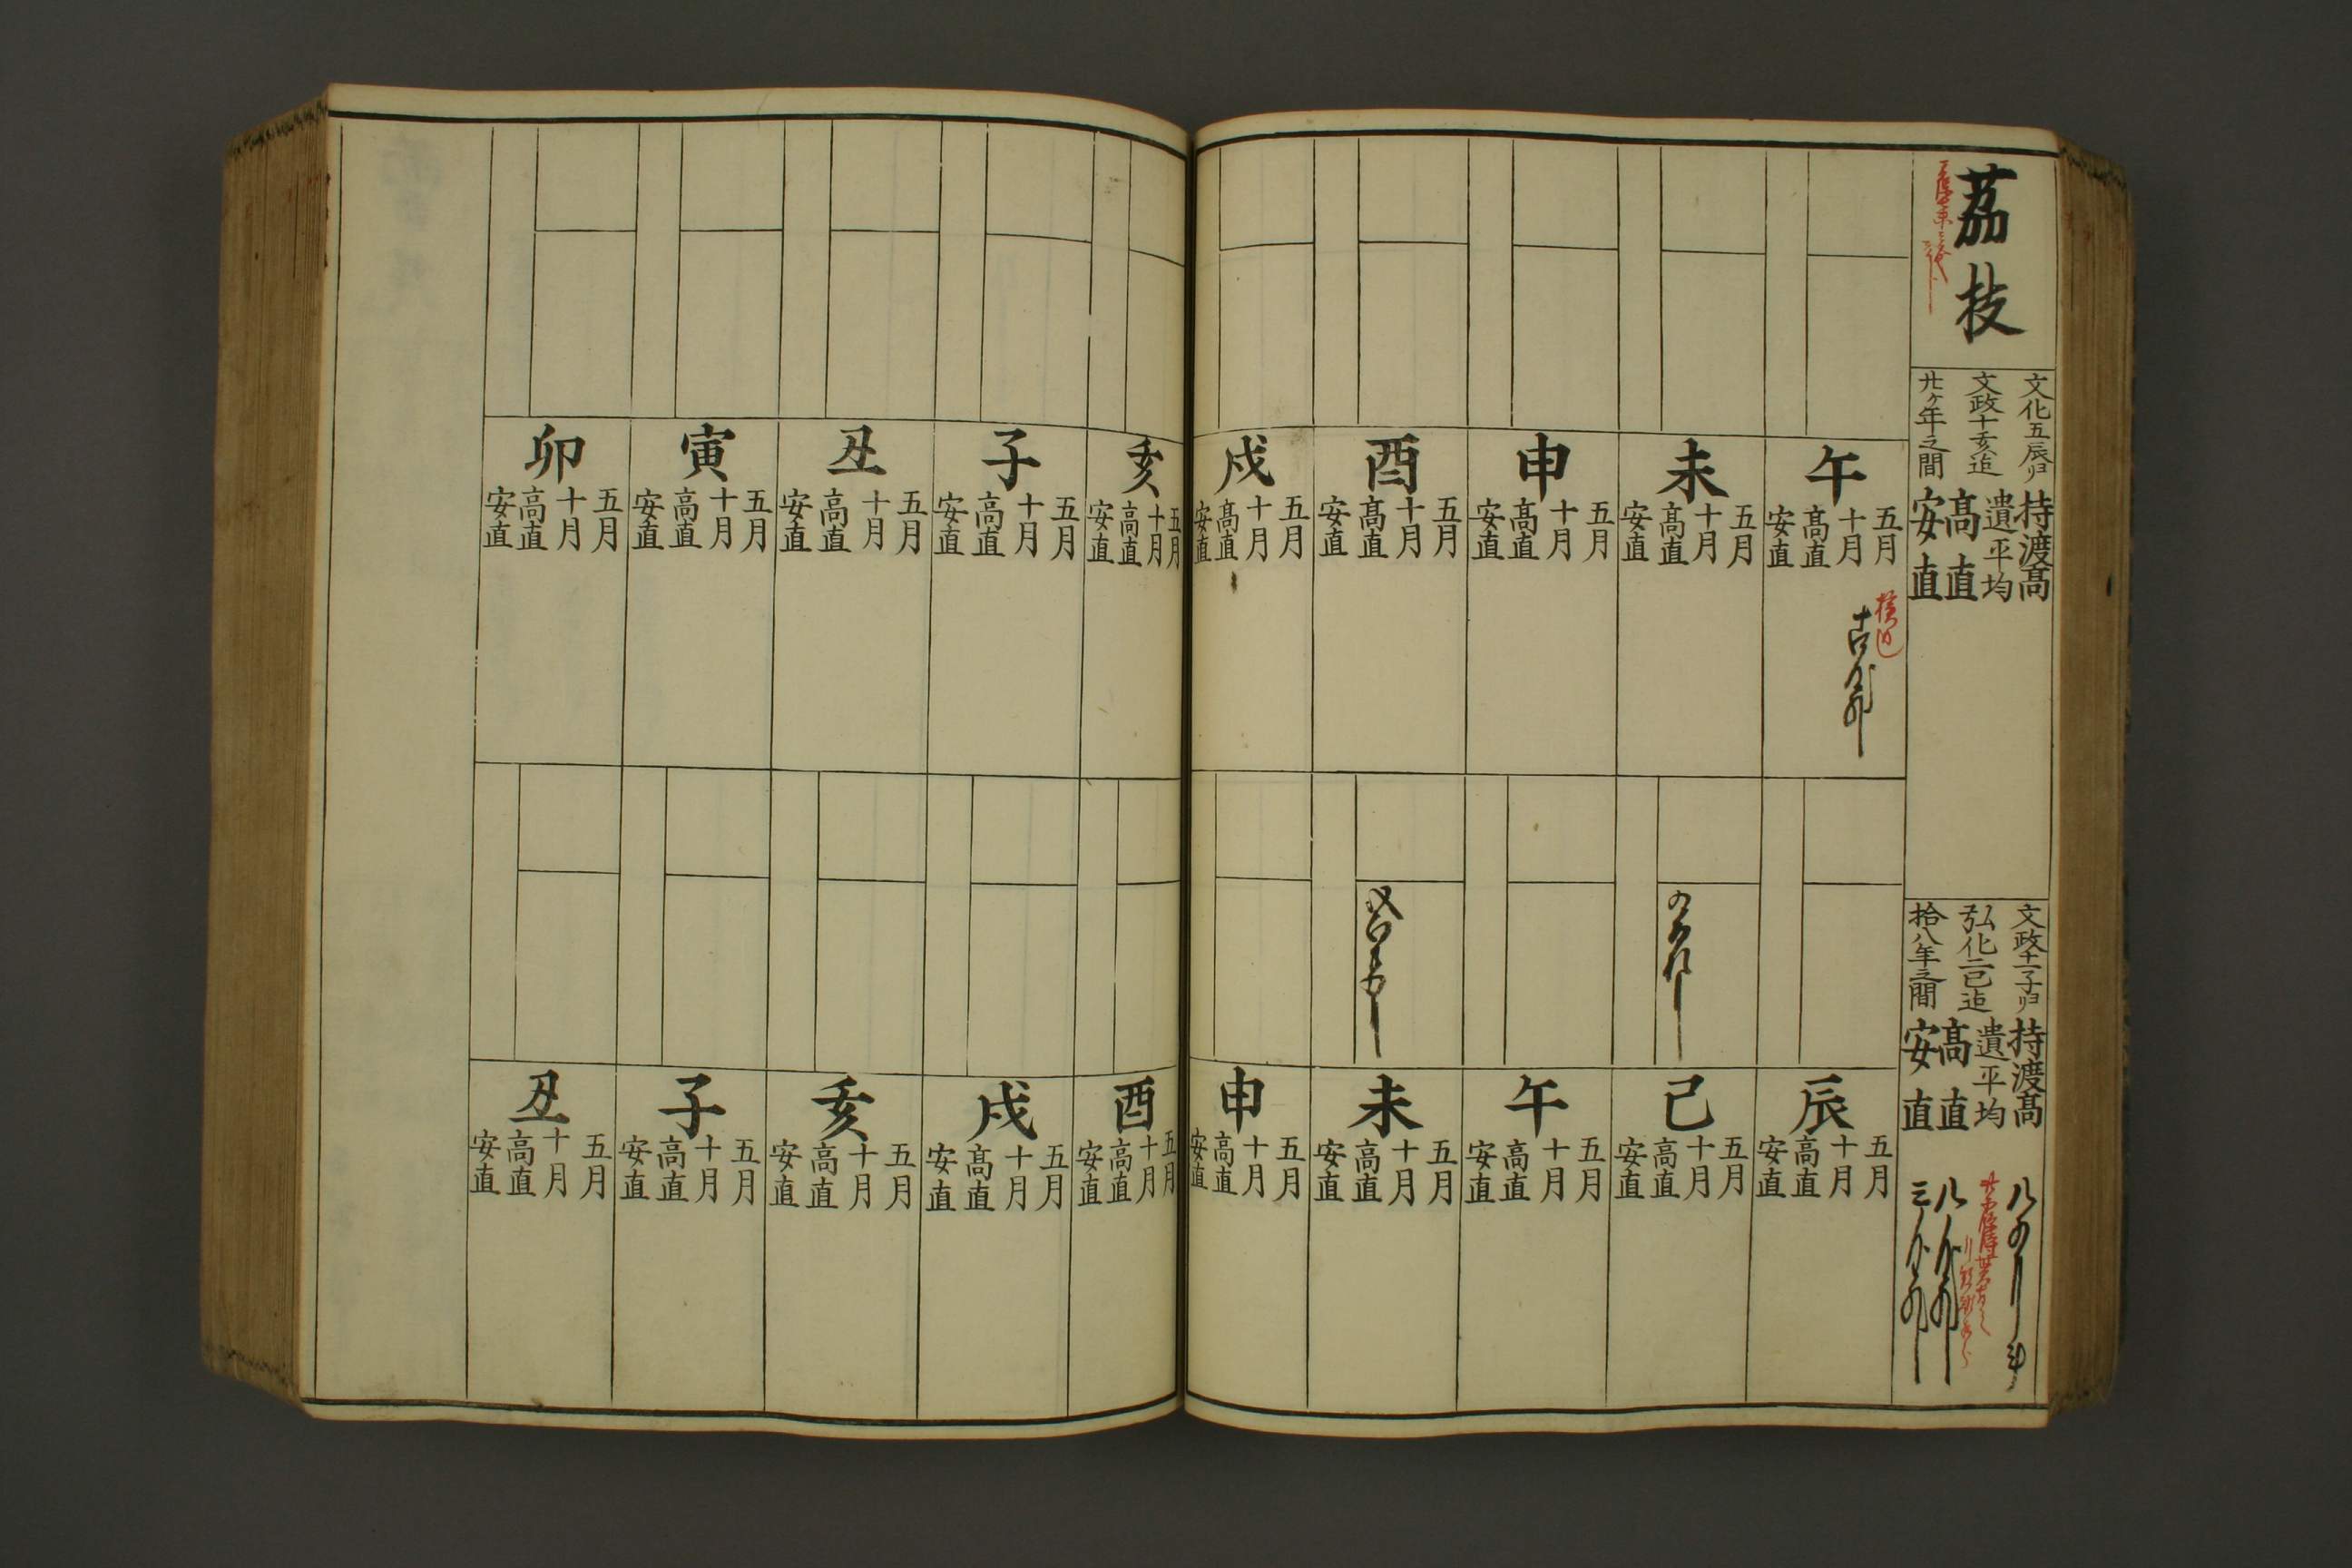 荔枝
文化五辰ヨリ
文政十亥迠
廿ヶ年之間
持渡髙
遺平均
髙直
安直
文政十一子ヨリ
弘化二巳迠
拾八年之間
持渡髙
遺平均
髙直
安直
午
五月
十月
髙直
安直
未
五月
十月
髙直
安直
申
五月
十月
髙直
安直
酉
五月
十月
髙直
安直
戌
五月
十月
髙直
安直
亥
五月
十月
高直
安直
子
五月
十月
高直
安直
丑
五月
十月
高直
安直
寅
五月
十月
高直
安直
卯
五月
十月
高直
安直
辰
五月
十月
高直
安直
巳
五月
十月
高直
安直
午
五月
十月
高直
安直
未
五月
十月
高直
安直
申
五月
十月
高直
安直
酉
五月
十月
高直
安直
戌
五月
十月
髙直
安直
亥
五月
十月
高直
安直
子
五月
十月
高直
安直
丑
五月
十月
高直
安直